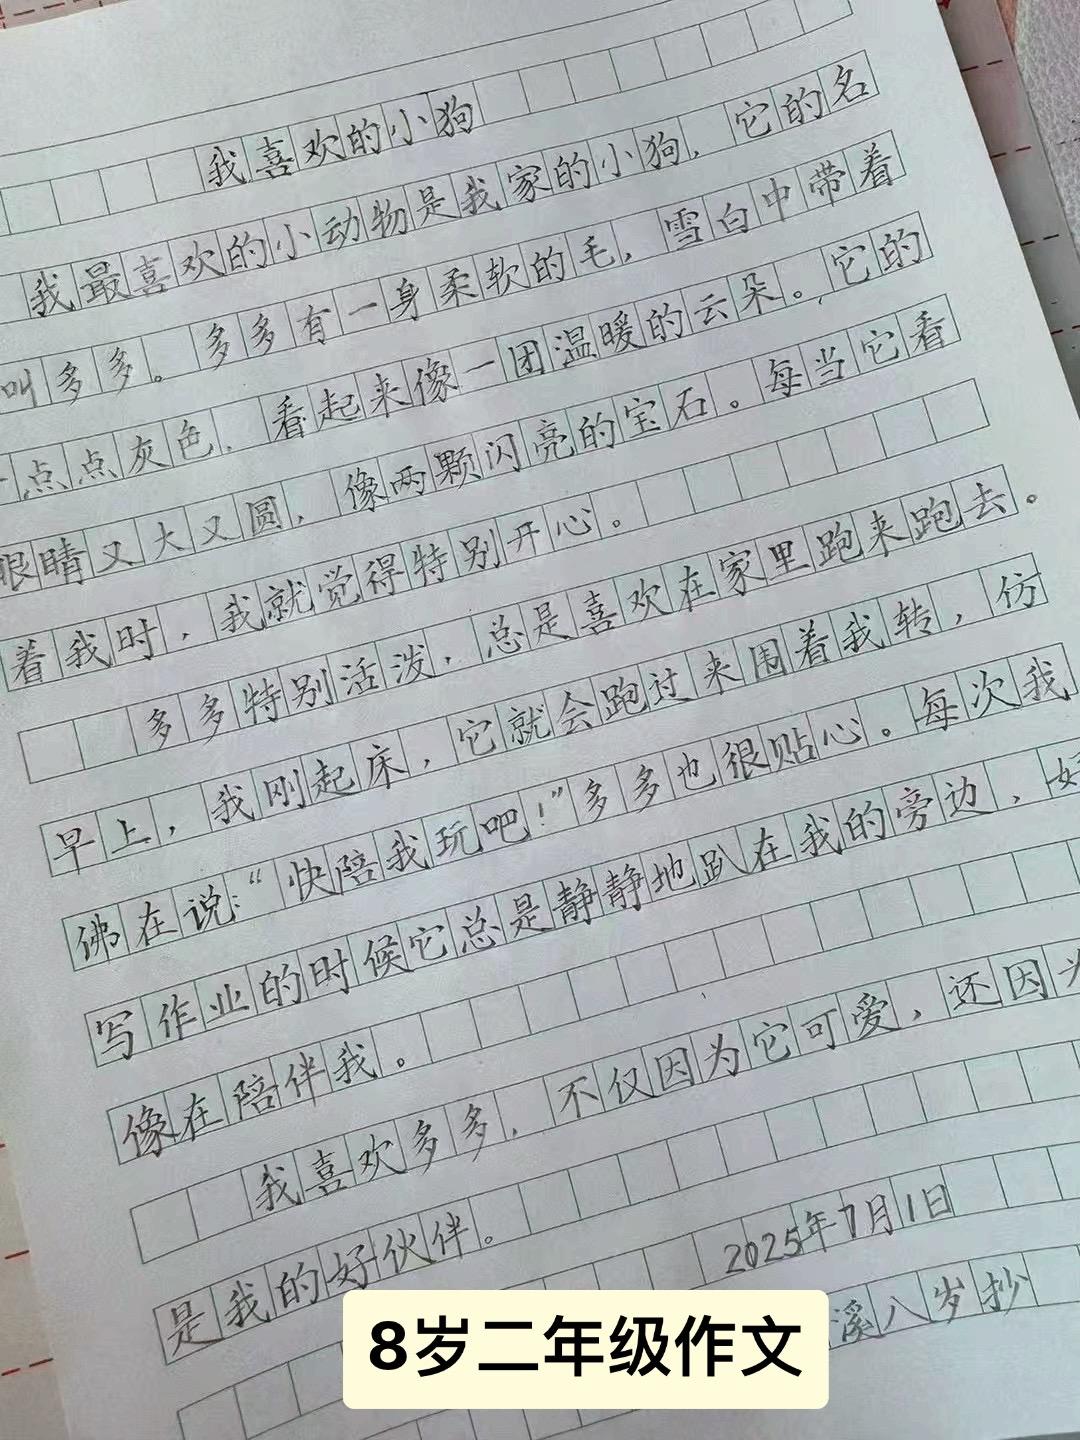 我喜欢的小狗
我最喜欢的小动物是我家的小狗，它的名
叫多多。多多有一身柔软的毛，雪白中带着
一点点灰色，看起来像一团温暖的云朵。它的
眼睛又大又圆，像两颗闪亮的宝石。每当它看
着我时，我就觉得特别开心。
多多特别活泼，总是喜欢在家里跑来跑去。
早上，我刚起床，它就会跑过来围着我转，仿
佛在说：“快陪我玩吧！”多多也很贴心。每次我
写作业的时候它总是静静地趴在我的旁边，好
像在陪伴我。
我喜欢多多，不仅因为它可爱，还因为
是我的好伙伴。
2025年7月1日
溪八岁抄
8岁二年级作文